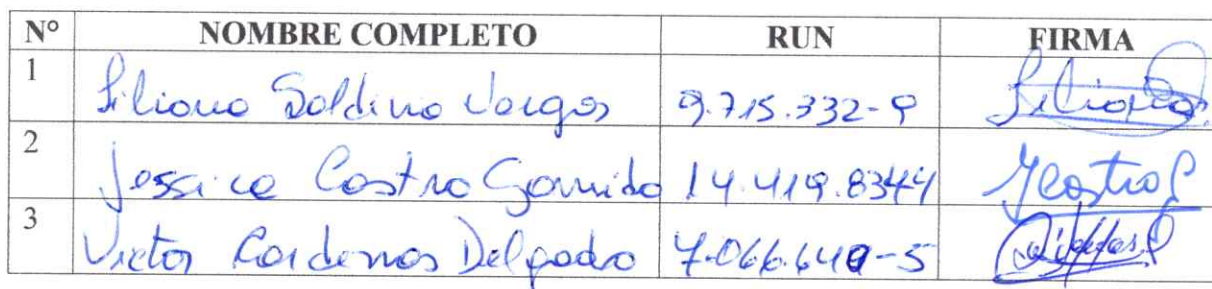 N° NOMBRE COMPLETO RUN FIRMA
1 Liliana Saldivia Vargas 9.715.332-9
2 Jessica Castro Garrido 14.419.8344 JCastro
3 Victor Cardenas Delgado